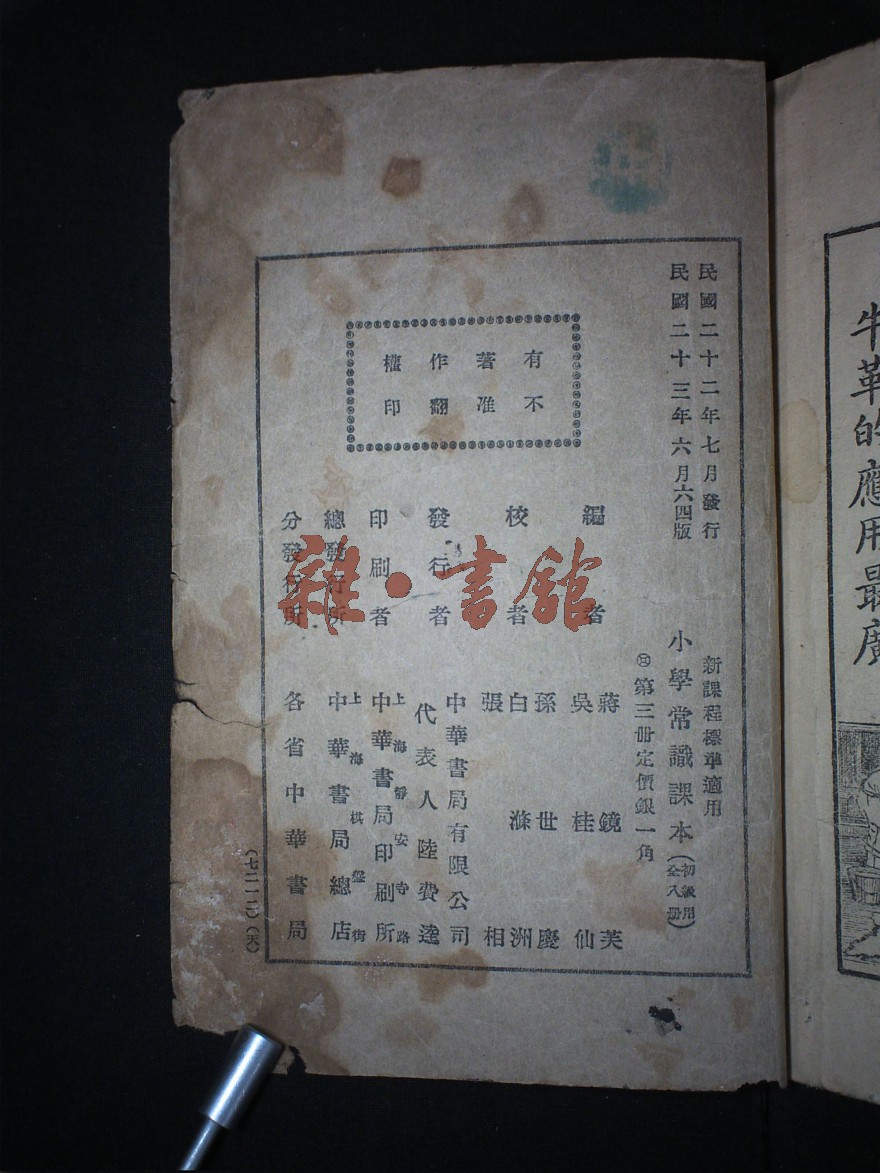 民國二十二年七月發行
民國二十三年六月六四版
新課程標準適用
小學常識課本(初級用全八册)
第三册定價銀一角
有著作權
不准翻印
編者
蔣鏡芙
吳桂仙
校者
孫世慶
白滌洲
張相
發行者
中華書局有限公司
代表人陸費逵
印刷者
上海靜安寺路
中華書局印刷所
總發行所
上海棋盤街
中華書局總店
分發行所
各省中華書局
(七二一二)
雜·書館
牛革的應用最廣